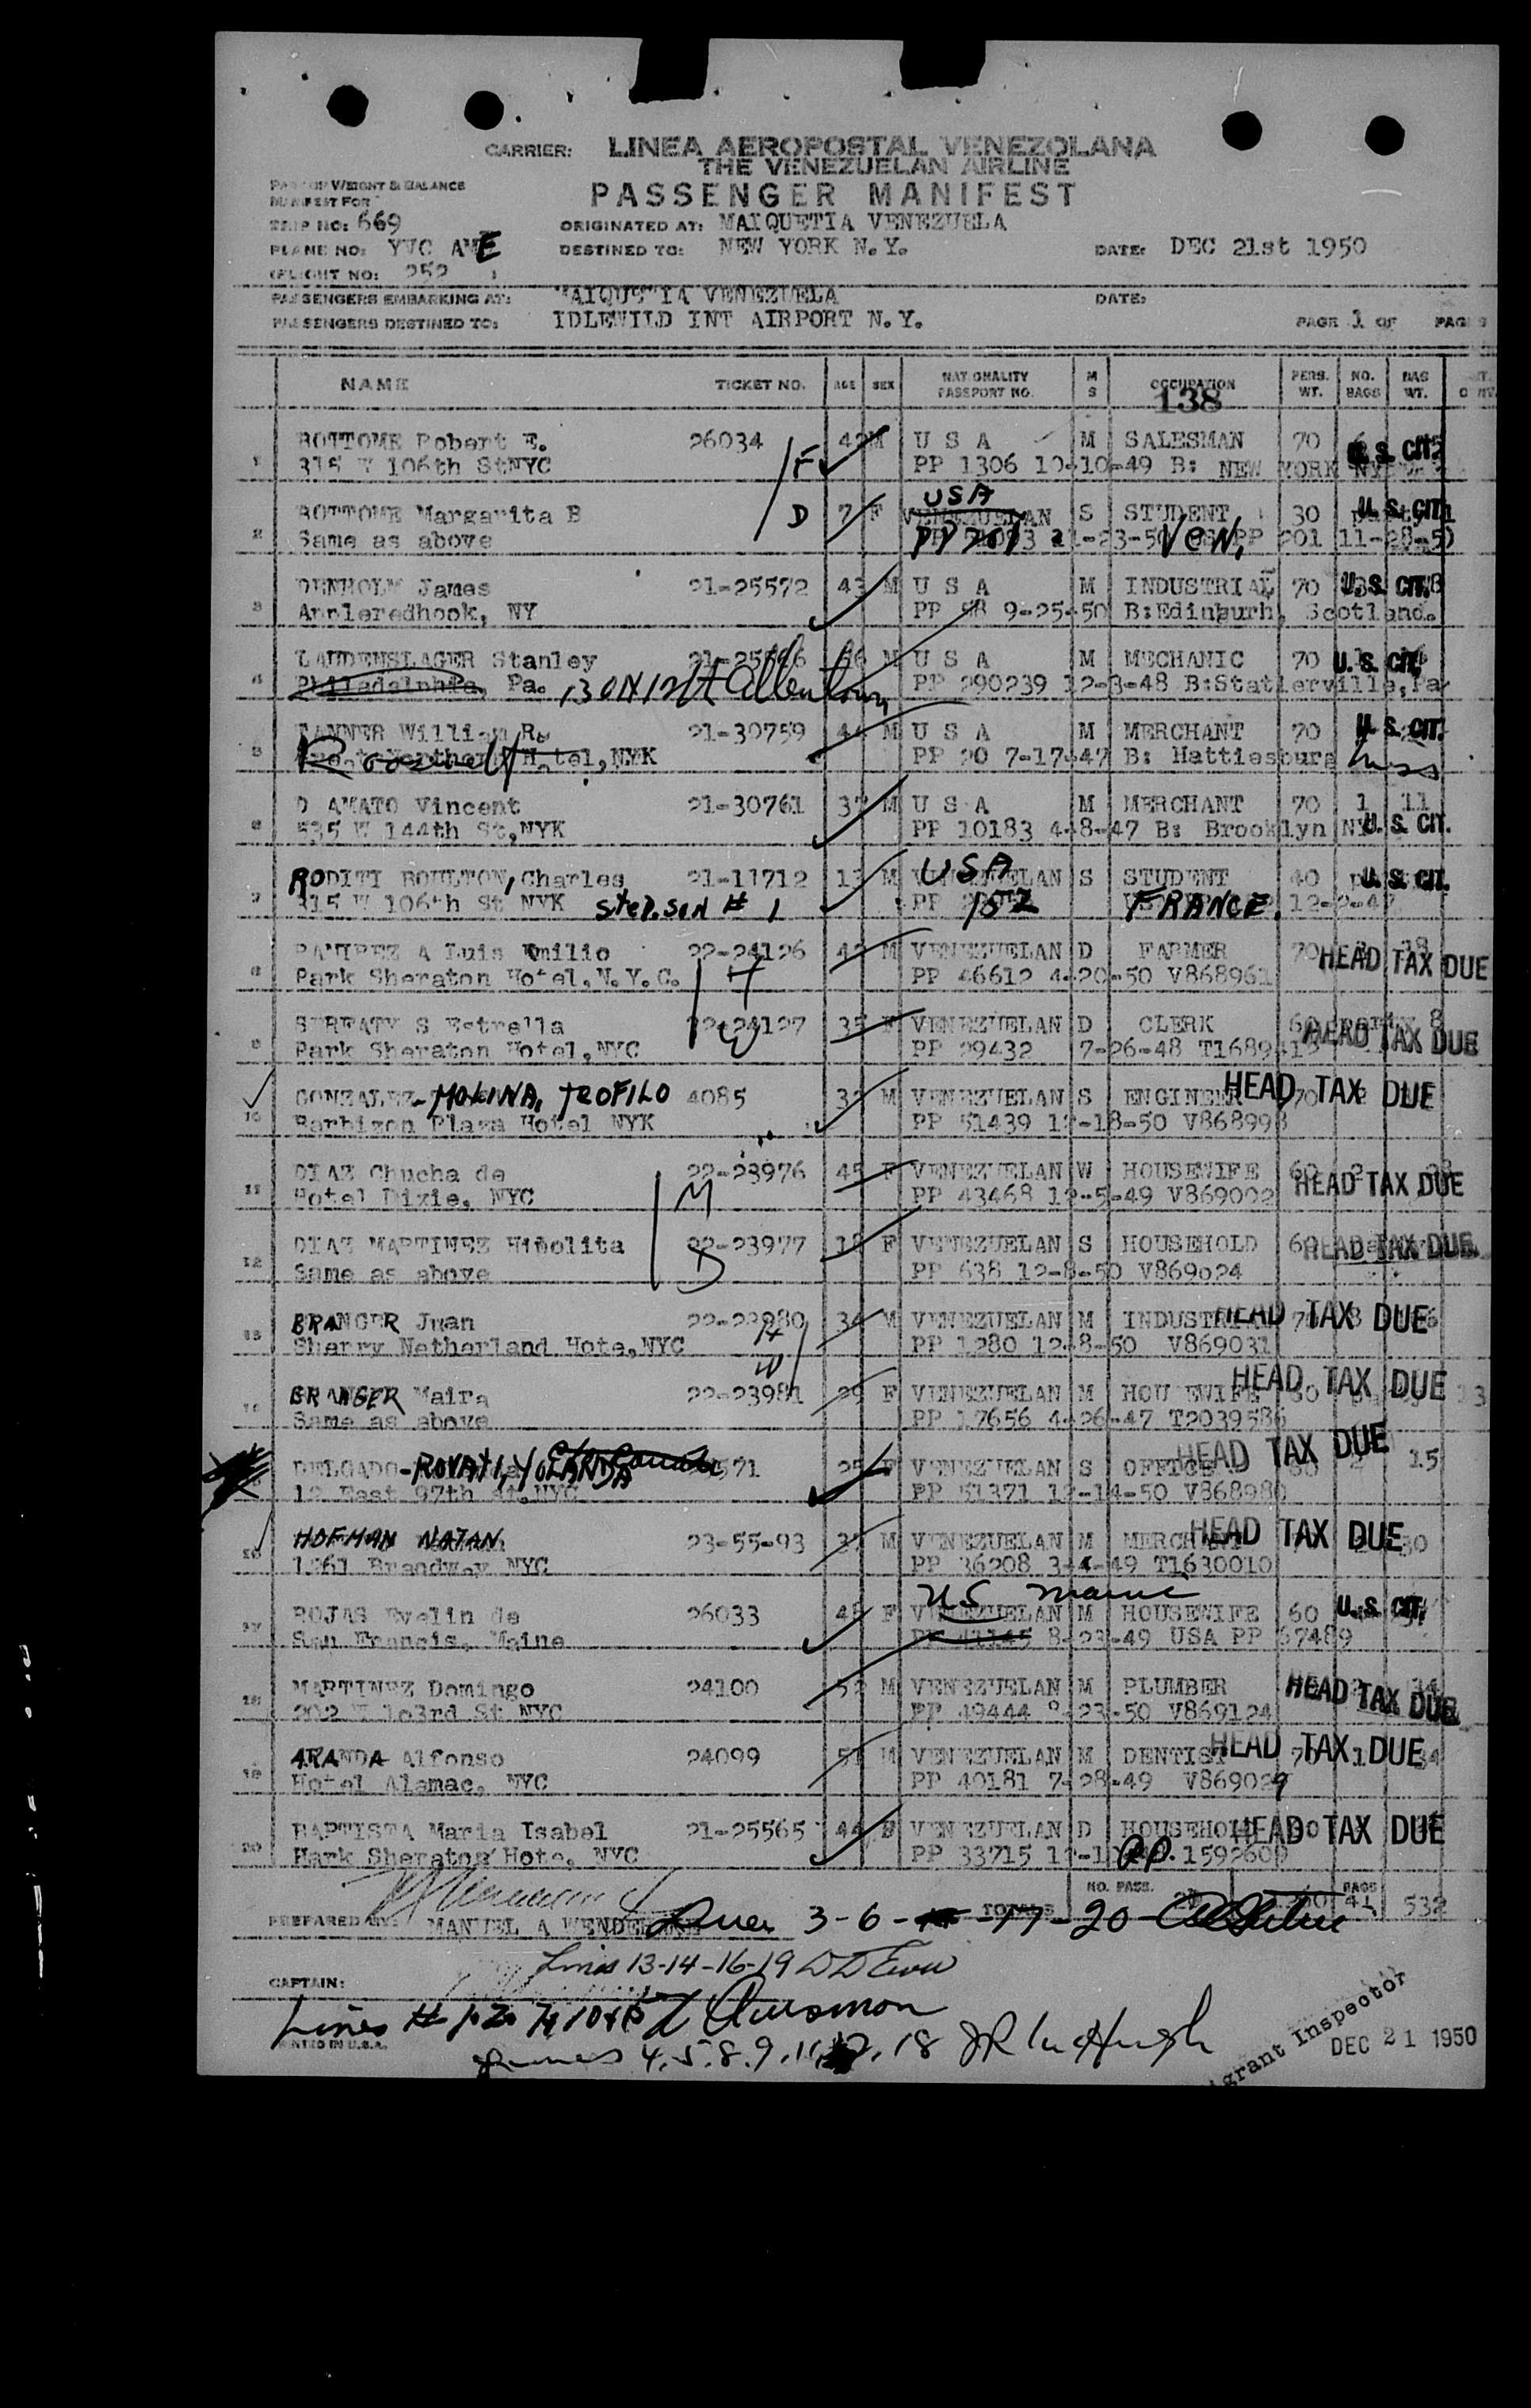 CARRIER: LINEA AEROPOSTAL VENEZOLANA
THE VENEZUELAN AIRLINE
PASSENGER MANIFEST
PART OF WEIGHT & BALANCE
MANIFEST FOR
TRIP NO: 669 ORIGINATED AT: MAIQUETIA VENEZUELA
PLANE NO: YVC AVE DESTINED TO: NEW YORK N.Y. DATE: DEC 21st 1950
(FLIGHT NO: 252 )
PASSENGERS EMBARKING AT: MAIQUETIA VENEZUELA DATE:
PASSENGERS DESTINED TO: IDLEWILD INT AIRPORT N.Y. PAGE 1 OF PAGES
NAME TICKET NO. AGE SEX NATIONALITY PASSPORT NO. M S OCCUPATION PERS. WT. NO. BAGS BAG WT.
138
1 BOTTOME Robert E. 26034 42 M U S A M SALESMAN 70 U.S. CIT.
315 W 106th StNYC F PP 1306 10-10-49 B: NEW YORK NY
2 BOTTOME Margarita B D 7 F USA VENEZUELAN S STUDENT 30 U.S. CIT.
Same as above PP 201 11-23-50 VEN. PP 201 11-28-50
3 DENHOLM James 21-25572 43 M U S A M INDUSTRIAL 70 U.S. CIT.
Appleredhook, NY PP 98 9-25-50 B:Edinburh, Scotland.
4 LAUDENSLAGER Stanley 56 M U S A M MECHANIC 70 U.S. CIT.
Philadelphia, Pa. 130 N 12 St Allentown PP 290239 12-3-48 B:Statlerville, Pa
5 William R. 21-30759 44 M U S A M MERCHANT 70 U.S. CIT.
Roosevelt Hotel, NYK PP 20 7-17-47 B: Hattiesburg Miss
6 D AMATO Vincent 21-30761 37 M U S A M MERCHANT 70 1 11
535 W 144th St, NYK PP 10183 4-8-47 B: Brooklyn NY U.S. CIT.
7 RODITI BOULTON, Charles 21-11712 13 M USA VENEZUELAN S STUDENT 40 U.S. CIT.
315 W 106th St NYK Stepson # 1 PP 152 FRANCE. 12-2-47
8 RAMIREZ A Luis Emilio 22-24126 42 M VENEZUELAN D FARMER 70 HEAD TAX DUE
Park Sheraton Hotel, N.Y.C. H PP 46612 4-20-50 V868961
9 Estrella 22-24127 35 F VENEZUELAN D CLERK 60 party 8
Park Sheraton Hotel, NYC W PP 29432 7-26-48 HEAD TAX DUE
10 GONZALEZ-MOLINA, TEOFILO 4085 32 M VENEZUELAN S ENGINEER 70 HEAD TAX DUE
Barbizon Plaza Hotel NYK PP 51439 12-18-50 V868998
11 DIAZ Chucha de 22-23976 45 F VENEZUELAN W HOUSEWIFE 60 2
Hotel Dixie, NYC M PP 43468 12-5-49 V869002 HEAD TAX DUE
12 DIAZ MARTINEZ Hipolita 22-23977 18 F VENEZUELAN S HOUSEHOLD 60 HEAD TAX DUE
Same as above D PP 638 12-8-50 V869024
13 BRANGER Juan 22-23980 34 M VENEZUELAN M INDUSTRIAL 70 HEAD TAX DUE
Sherry Netherland Hote, NYC H PP 1280 12-8-50 V869031
14 BRANGER Maira 22-23981 29 F VENEZUELAN M HOUSEWIFE HEAD TAX DUE
Same as above W PP 17656 4-26-47 T2039586
15 DELGADO-ROVATI, YOLANDA 25 F VENEZUELAN S OFFICE HEAD TAX DUE 15
12 East 97th St, NYC PP 51371 12-14-50 V868980
16 HOFMAN NATAN 23-55-93 37 M VENEZUELAN M MERCHANT HEAD TAX DUE 30
1261 Broadway NYC PP 36208 3-4-49 T1630010
17 ROJAS Evelin de 26033 48 F US Maine VENEZUELAN M HOUSEWIFE 60 U.S. CIT.
San Francis, Maine PP 41145 8-23-49 USA PP 67489
18 MARTINEZ Domingo 24100 52 M VENEZUELAN M PLUMBER HEAD TAX DUE
202 W 103rd St NYC PP 49444 8-23-50 V869124
19 ARANDA Alfonso 24099 51 M VENEZUELAN M DENTIST 70 1 HEAD TAX DUE
Hotel Alamac, NYC PP 40181 7-28-49 V869029
20 BAPTISTA Maria Isabel 21-25565 44 F VENEZUELAN D HOUSEHOLD HEAD TAX DUE
Hark Sheraton Hote, NYC PP 33715 RP. 1592600
TOTALS NO. PASS. 20 BAGS 41 532
PREPARED BY: MANUEL A Lines 3-6- -17-20
Lines 13-14-16-19
CAPTAIN:
Lines # 1. 2. 7. 10 & 15
PRINTED IN U.S.A.
Lines 4. 5. 8. 9. 11. 12. 18 JR McHugh
Immigrant Inspector
DEC 21 1950